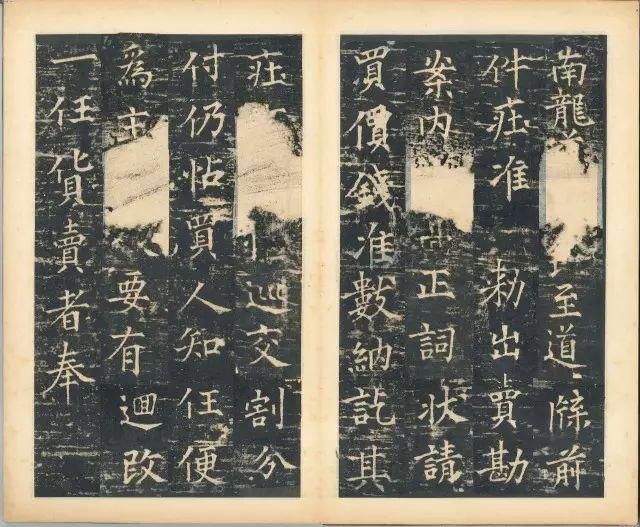 南龍至道牒前
件莊准勅出賣勘
案内正詞狀請
買價錢准數納訖其
莊巡交割分
付仍帖買人知任便
爲主要有迴改
一任貨賣者奉